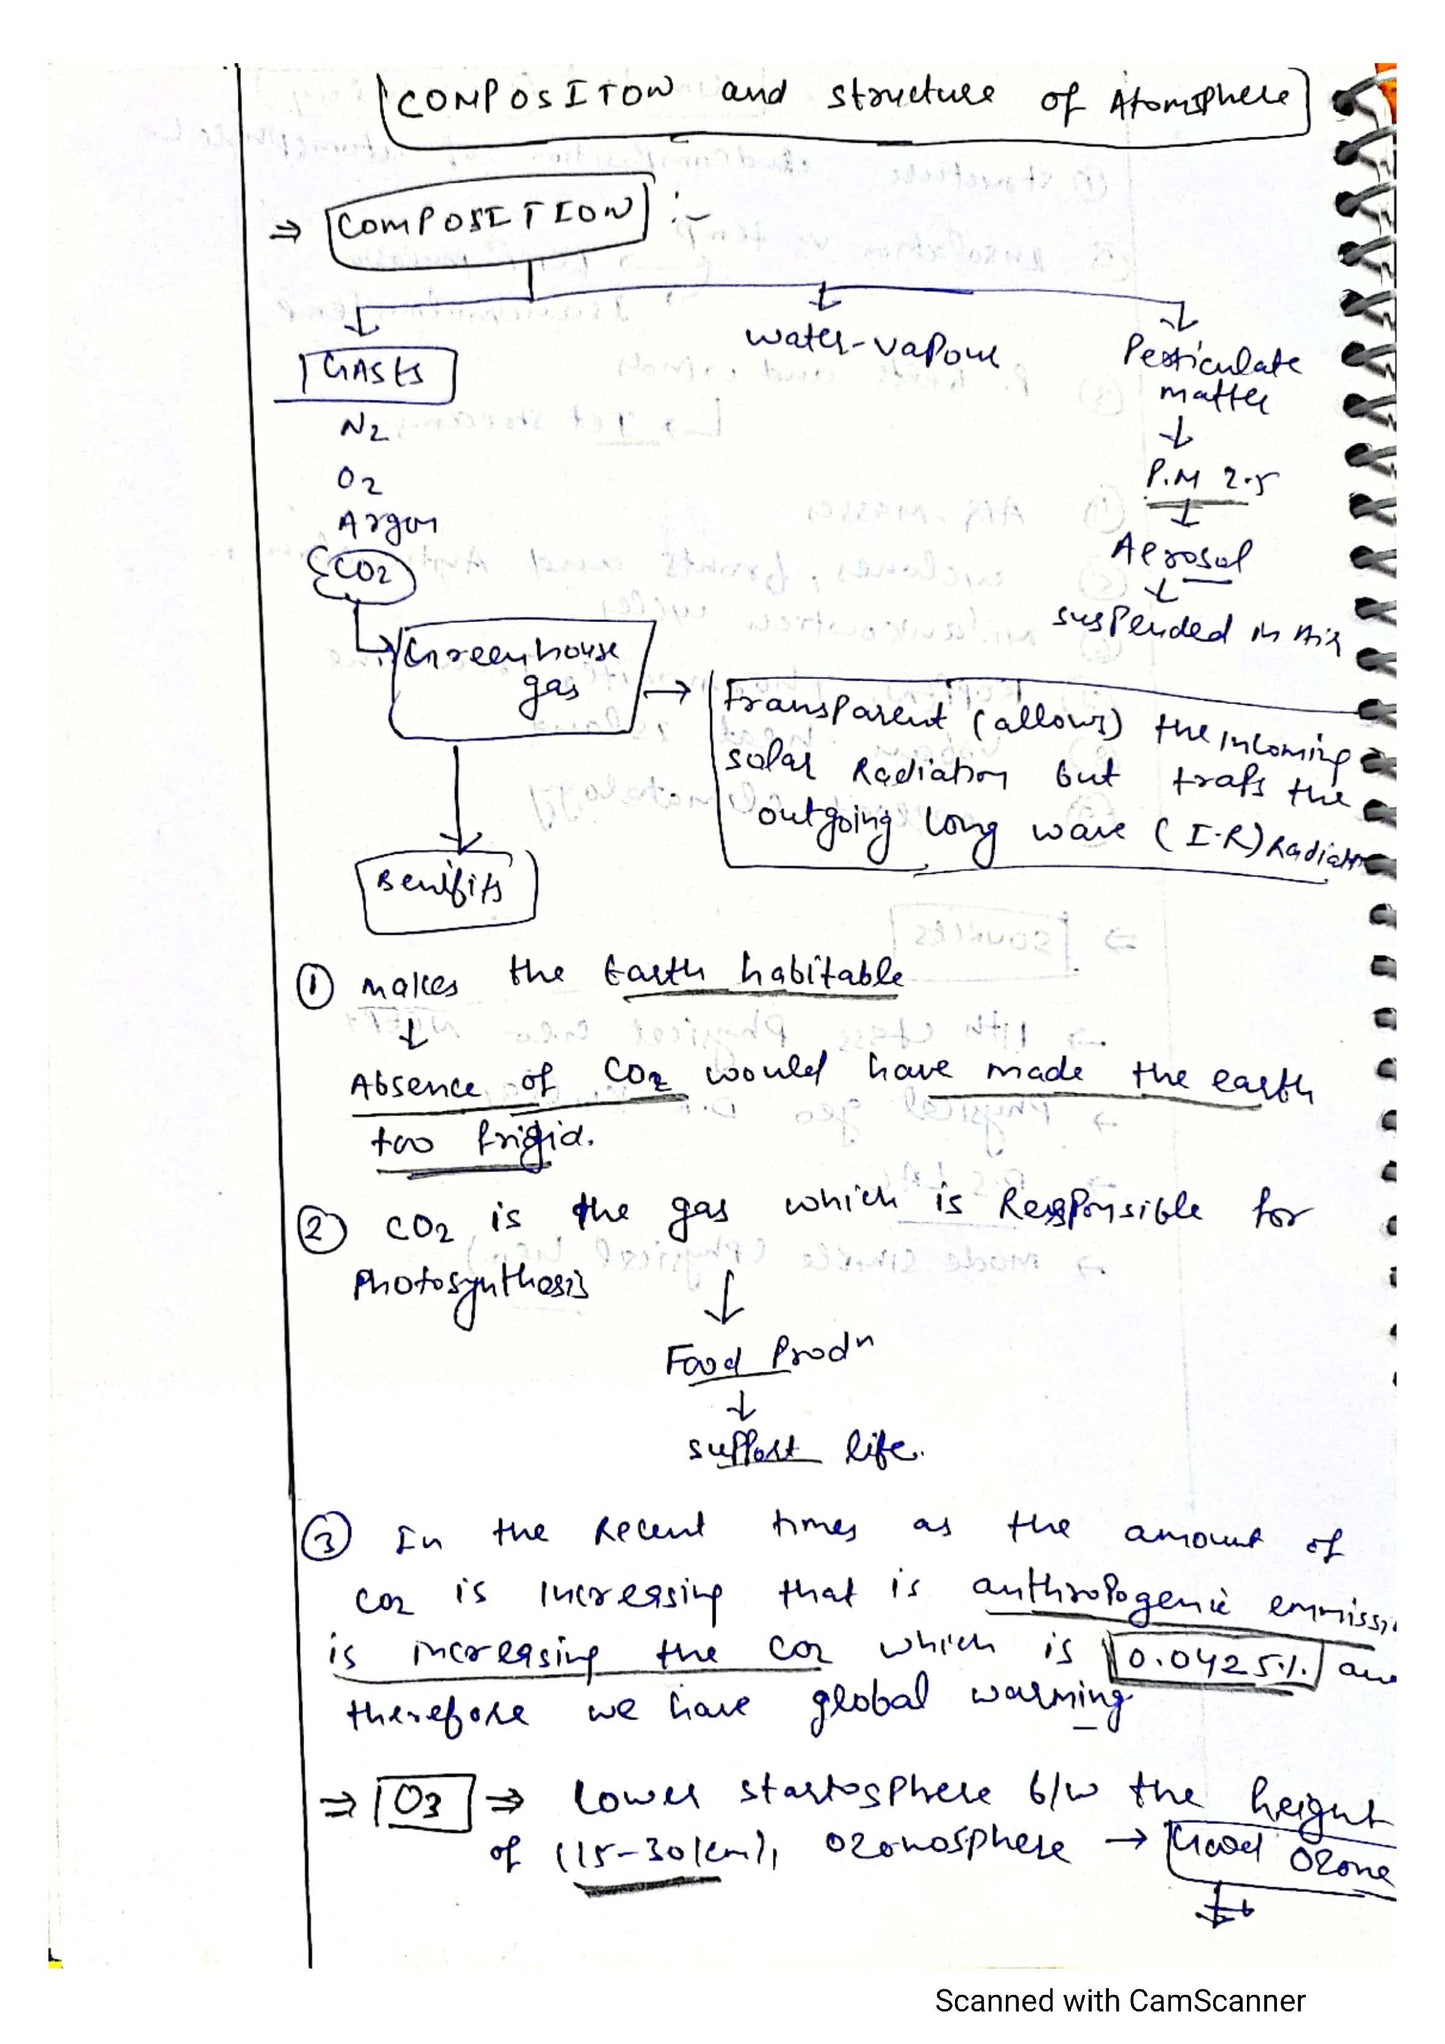 COMPOSITON and structure of Atomsphere
⇒ COMPOSITION :-
GASES
water-vapour
Perticulate
matter
N2
O2
Argon
CO2
P.M 2.5
Aerosol
suspended in Air
Greenhouse
gas
→ transparent (allows) the incoming
solar Radiation but traps the
outgoing long wave (I.R) Radiatn
Benifits
① makes the Earth habitable
Absence of CO2 would have made the earth
too frigid.
② CO2 is the gas which is Responsible for
Photosynthesis
Food Prodn
support life.
③ In the Recent times as the amount of
CO2 is increasing that is anthropogenic emmissi
is increasing the CO2 which is 0.0425% an
therefore we have global warming
⇒ O3 ⇒ Lower startosphere b/w the height
of (15-30km), Ozonosphere → Good Ozone
Scanned with CamScanner